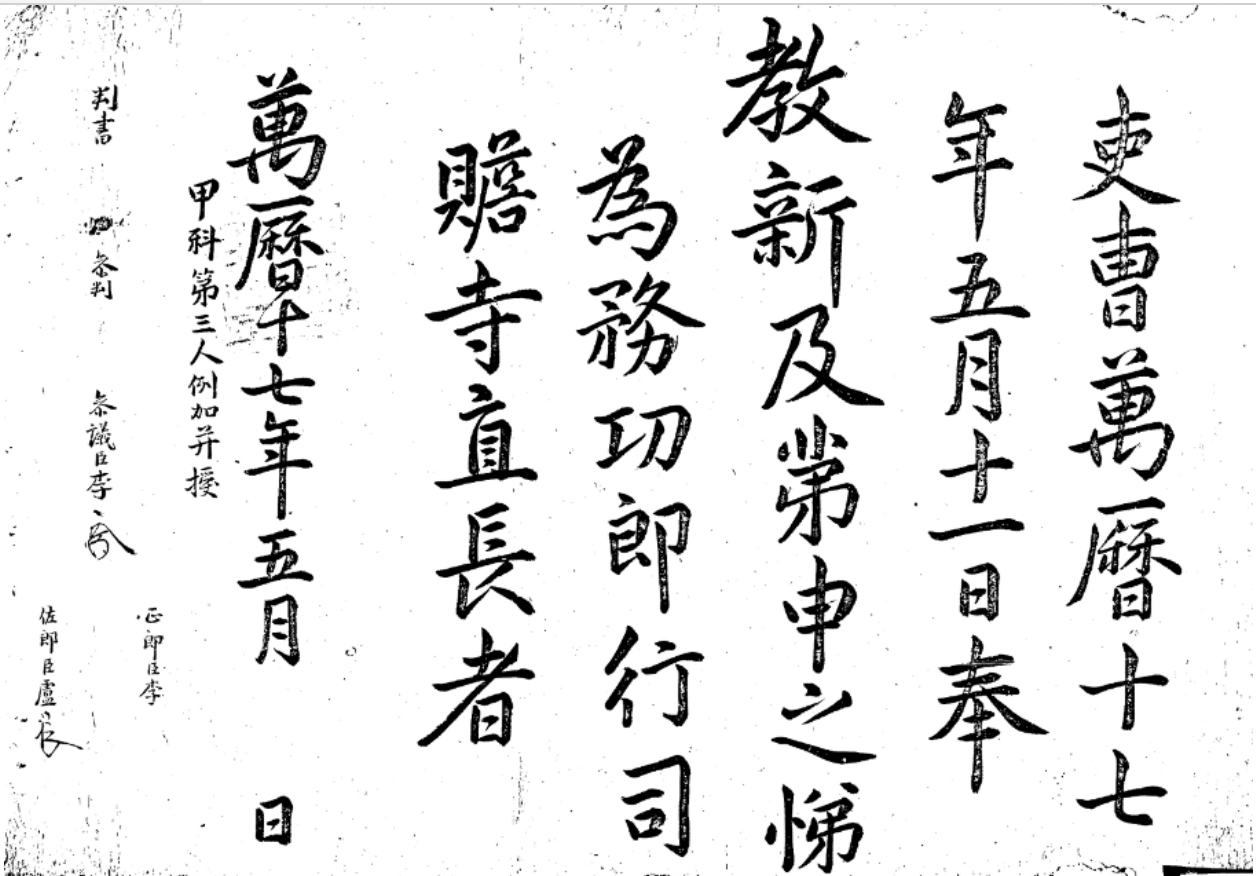 吏曺萬曆十七
年五月十一日奉
教新及第申之悌
為務功郎行司
贍寺直長者
萬曆十七年五月 日
甲科第三人例加并授
判書 參判 參議臣李
正郎臣李
佐郎臣盧